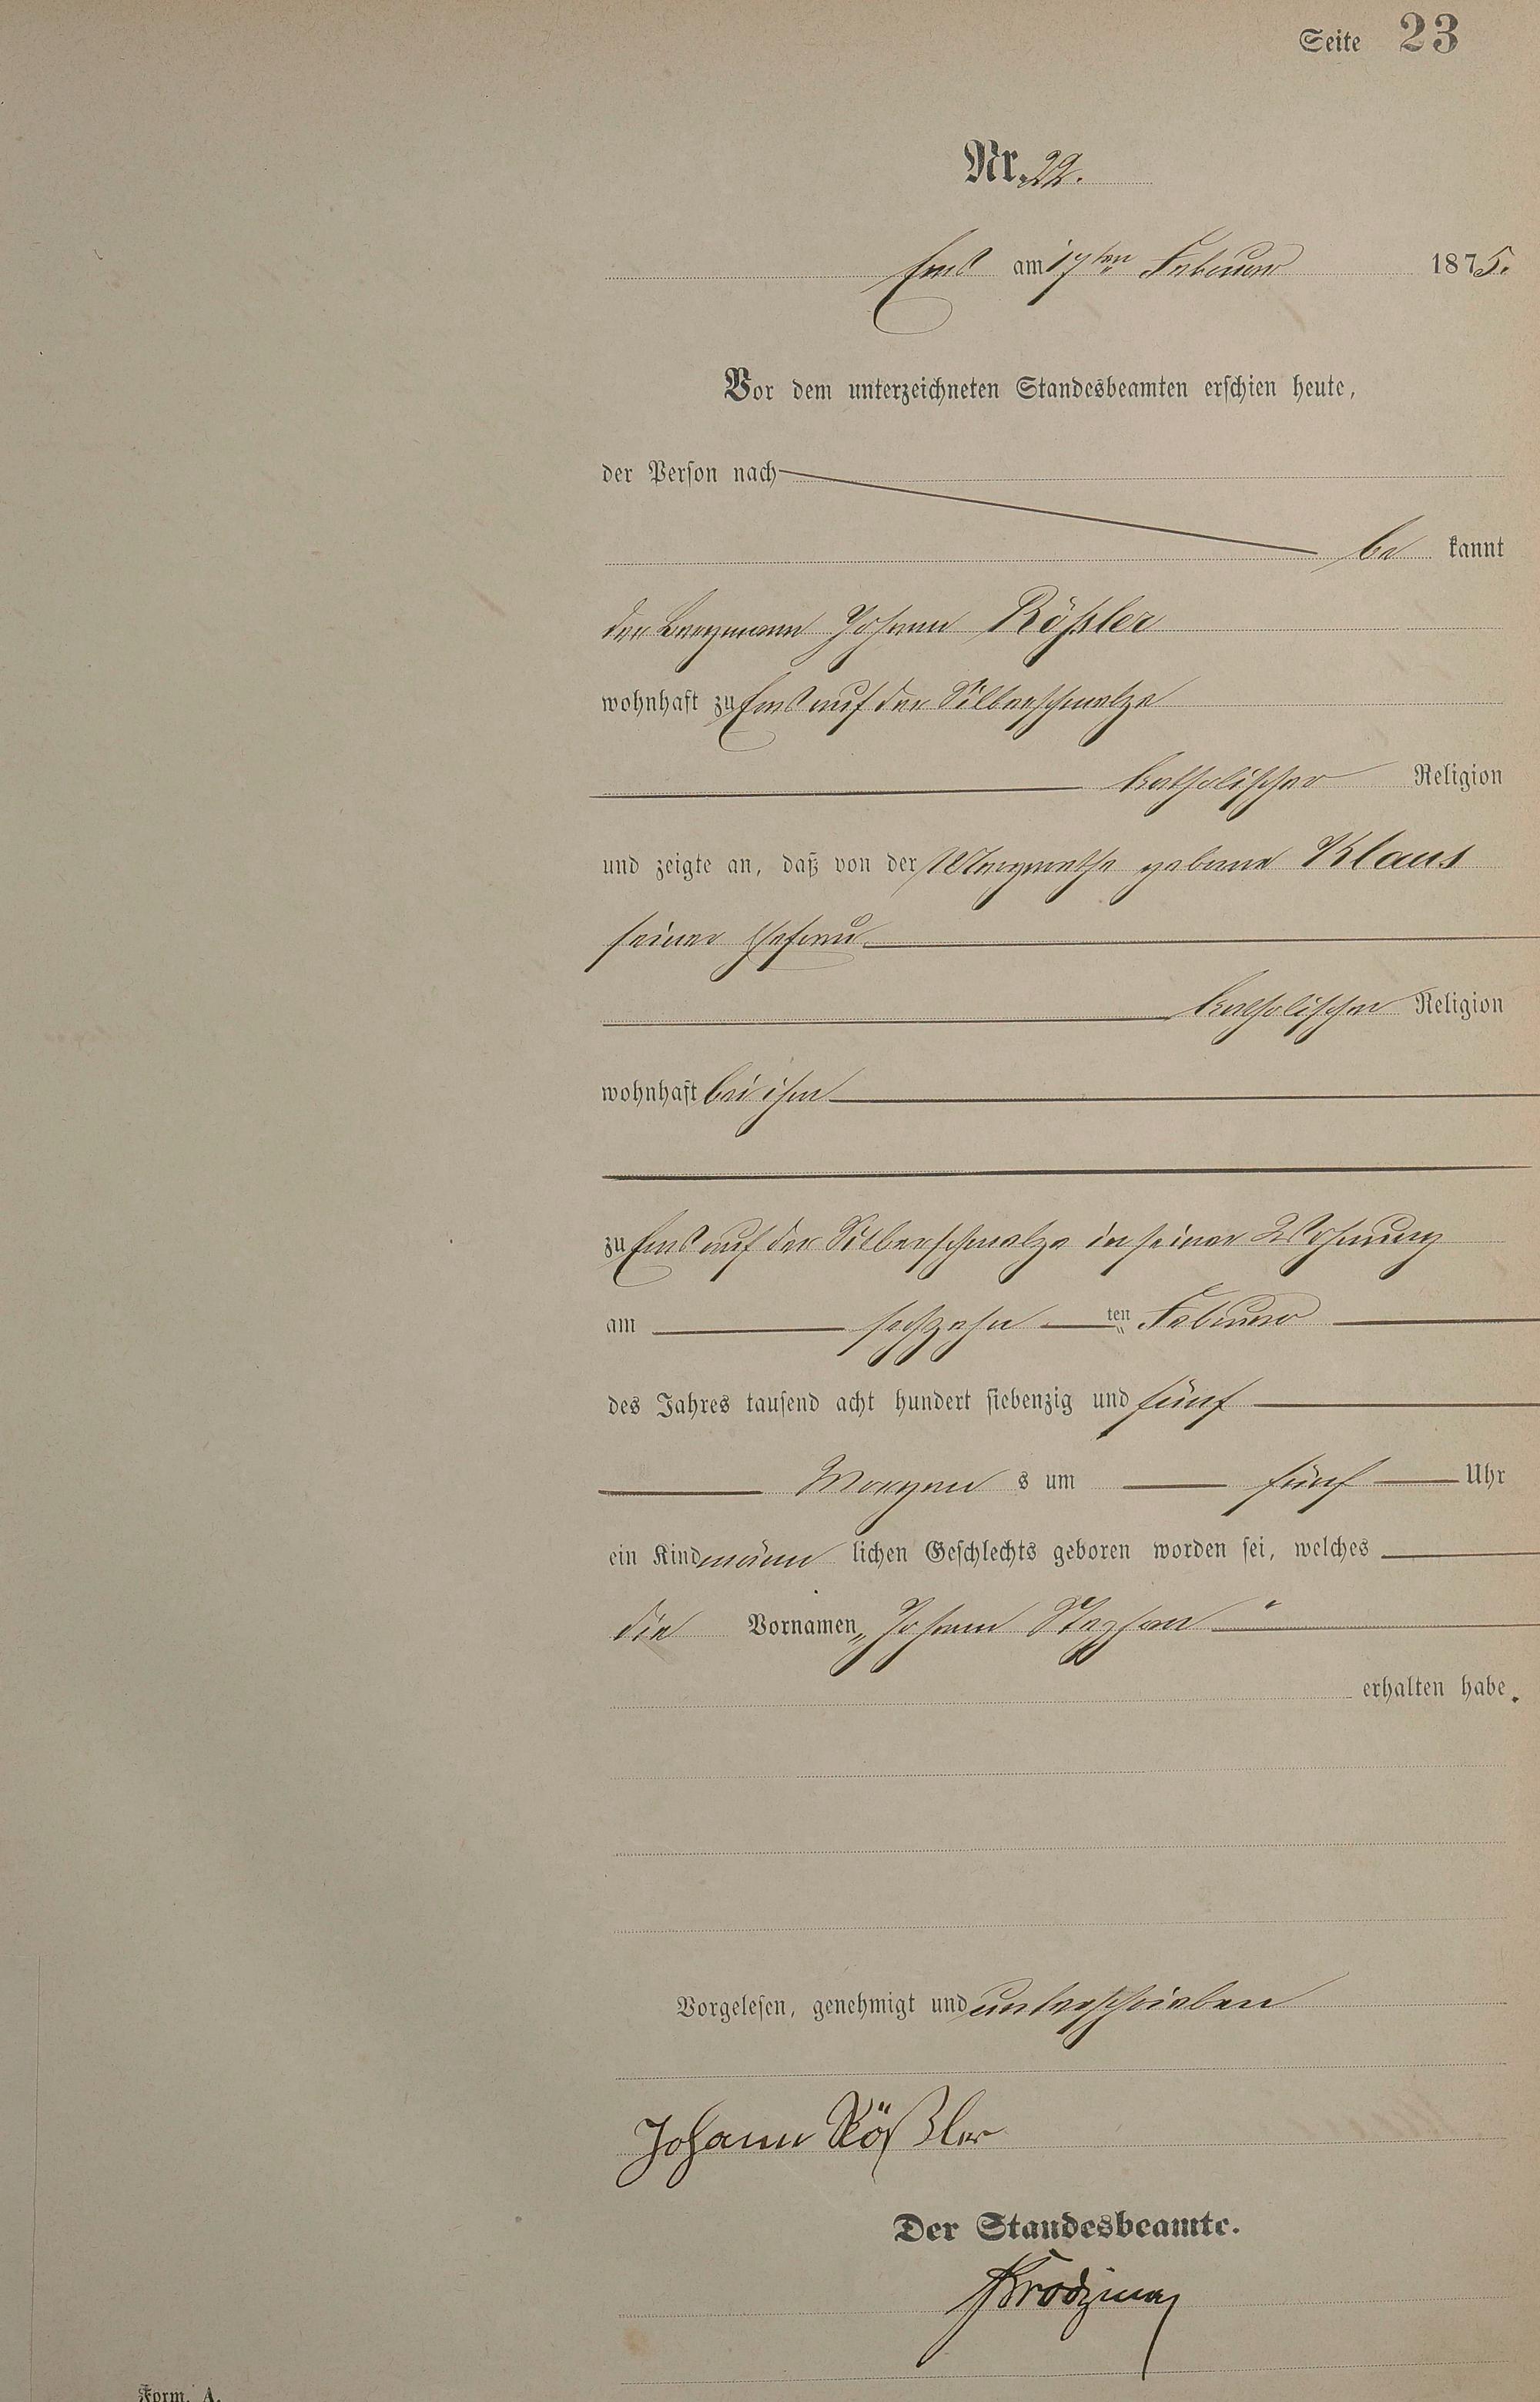 Seite 23
Nr. 22.
Ems am 17ten Februar 1875.
Vor dem unterzeichneten Standesbeamten erschien heute,
der Person nach
be kannt
der Bergmann Johann Rößler
wohnhaft zu Ems auf der Silberschmelze
katholischer Religion
und zeigte an, daß von der Margarethe geborne Klaus
seiner Ehefrau
katholischer Religion
wohnhaft bei ihm
zu Ems auf der Silberschmelze in seiner Wohnung
am sechzehn ten Februar
des Jahres tausend acht hundert siebenzig und fünf
Morgen s um fünf Uhr
ein Kind männ lichen Geschlechts geboren worden sei, welches
die Vornamen „Johann Stephan“
erhalten habe.
Vorgelesen, genehmigt und unterschrieben
Johann Rößler
Der Standesbeamte.
Form. A.